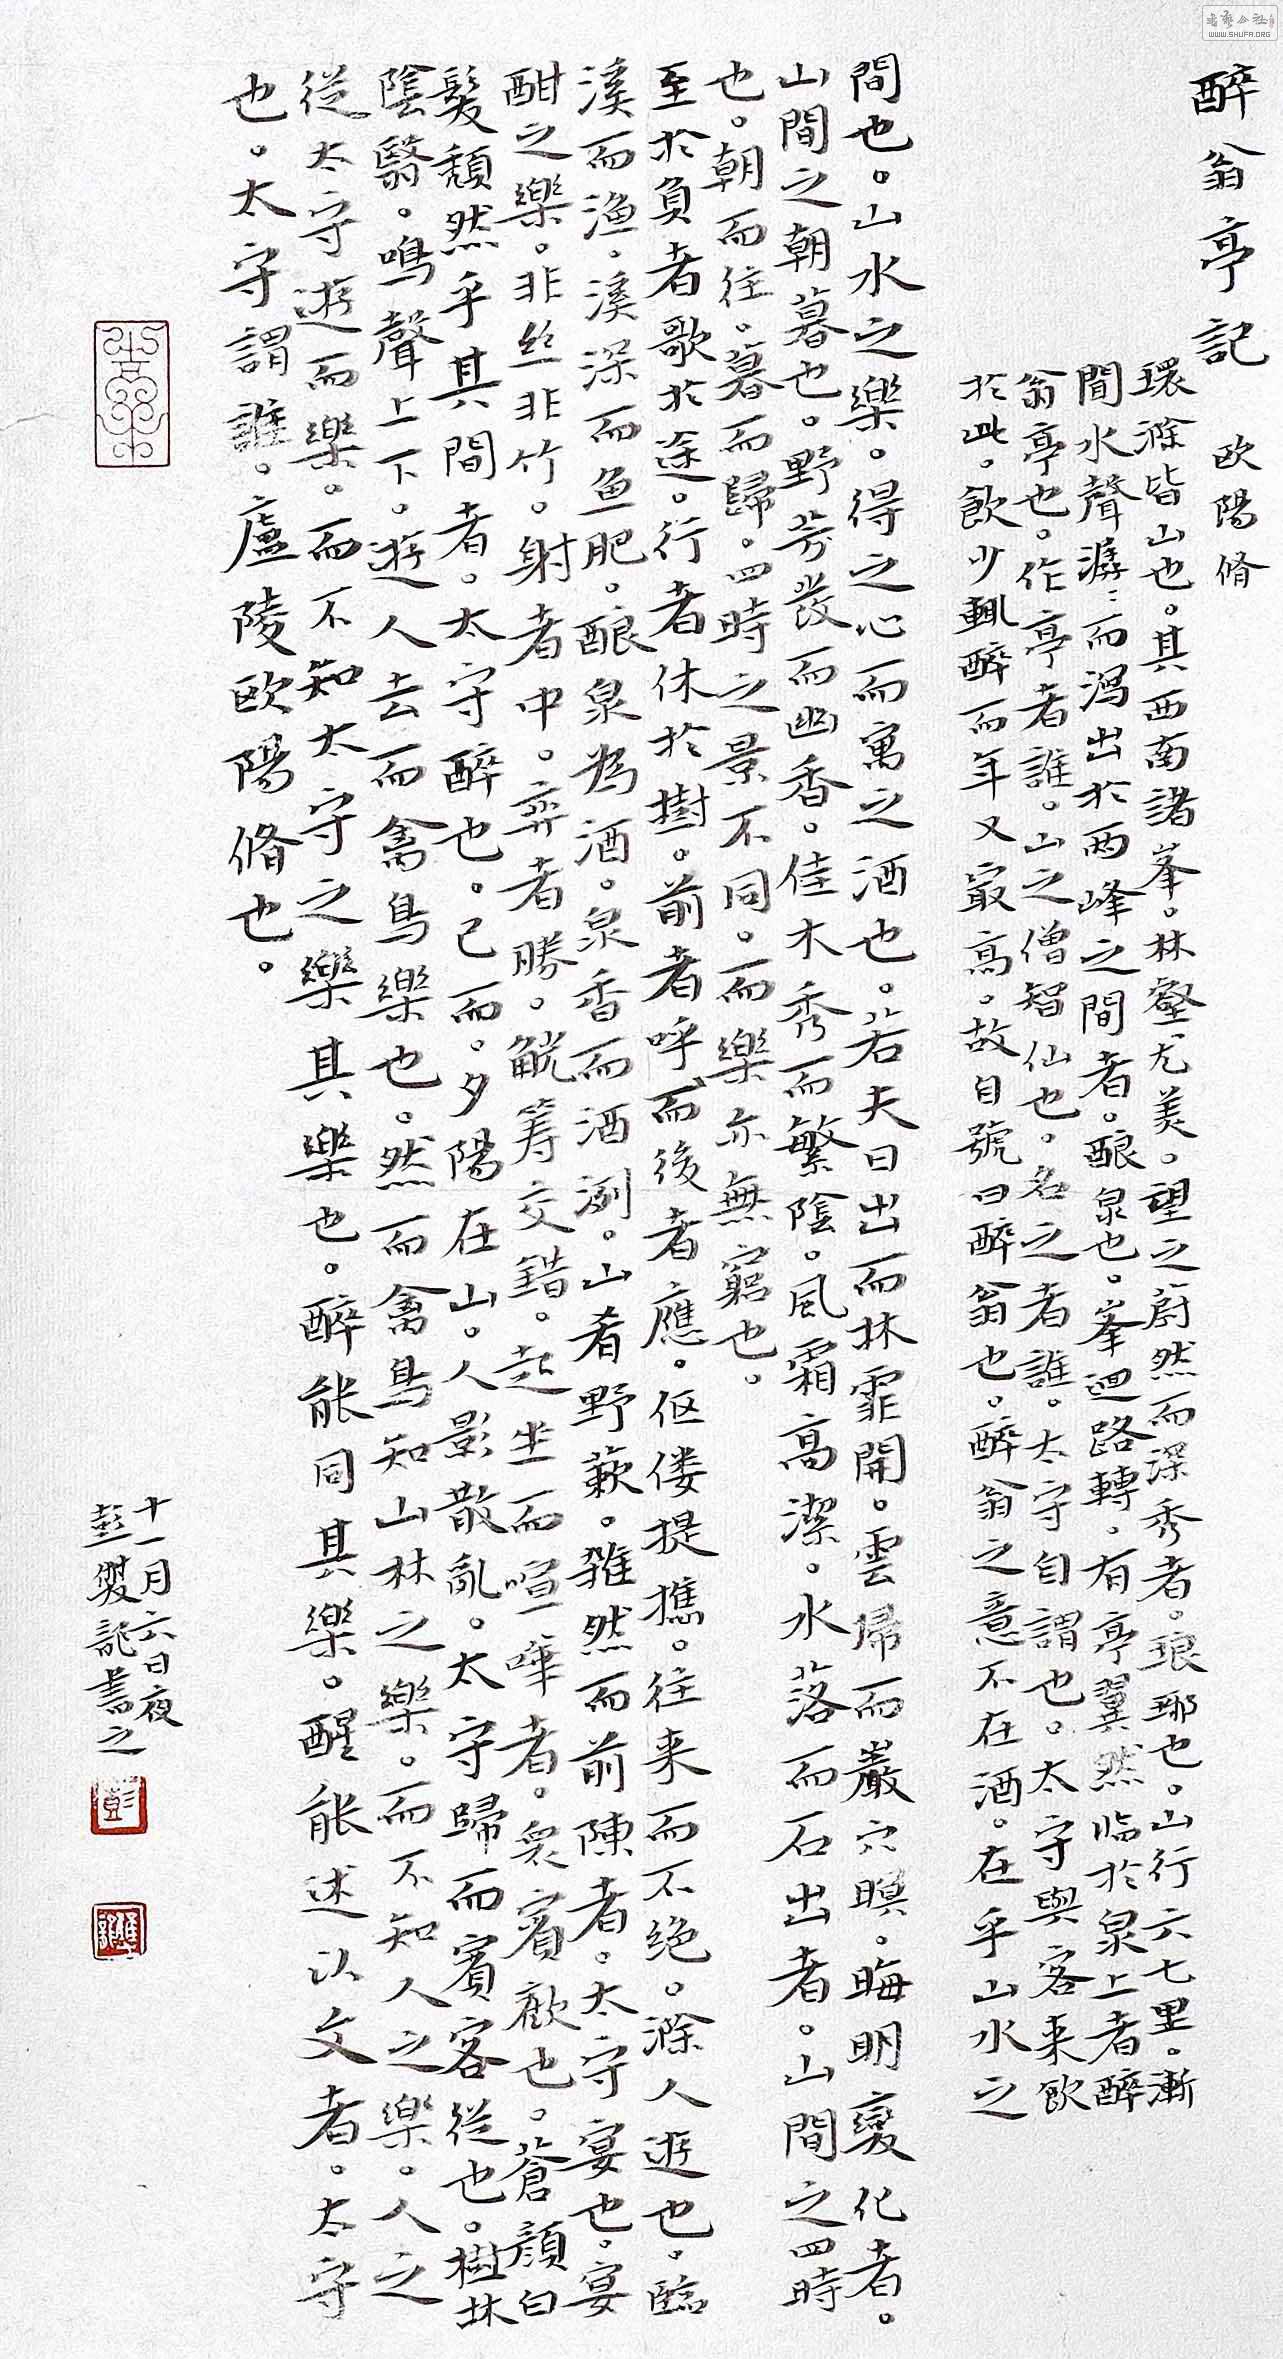 醉翁亭記 欧陽脩
環滁皆山也。其西南諸峯。林壑尤美。望之蔚然而深秀者。琅琊也。山行六七里。漸
聞水聲潺〻而瀉出於两峰之間者。酿泉也。峯迴路轉。有亭翼然临於泉上者醉
翁亭也。作亭者誰。山之僧智仙也。名之者誰。太守自謂也。太守與客来飲
於此。飲少輒醉而年又最高。故自號曰醉翁也。醉翁之意不在酒。在乎山水之
間也。山水之樂。得之心而寓之酒也。若夫日出而林霏開。雲歸而巖穴暝。晦明變化者。
山間之朝暮也。野芳發而幽香。佳木秀而繁陰。風霜高潔。水落而石出者。山間之四時
也。朝而往。暮而歸。四時之景不同。而樂亦無窮也。
至於負者歌於途。行者休於樹。前者呼而後者應。伛偻提携。往来而不绝。滁人遊也。臨
溪而渔。溪深而鱼肥。酿泉為酒。泉香而酒洌。山肴野蔌。雜然而前陳者。太守宴也。宴
酣之樂。非丝非竹。射者中。弈者勝。觥筹交錯。起坐而喧嘩者。衆賓歡也。蒼顔白
髮頹然乎其間者。太守醉也。已而。夕陽在山。人影散亂。太守歸而賓客從也。樹林
陰翳。鳴聲上下。遊人去而禽鳥樂也。然而禽鳥知山林之樂。而不知人之樂。人之
從太守遊而樂。而不知太守之樂其樂也。醉能同其樂。醒能述以文者。太守
也。太守謂誰。廬陵欧陽脩也。
十一月六日夜
彭雙龍書之
彭
WWW.SHUFA.ORG